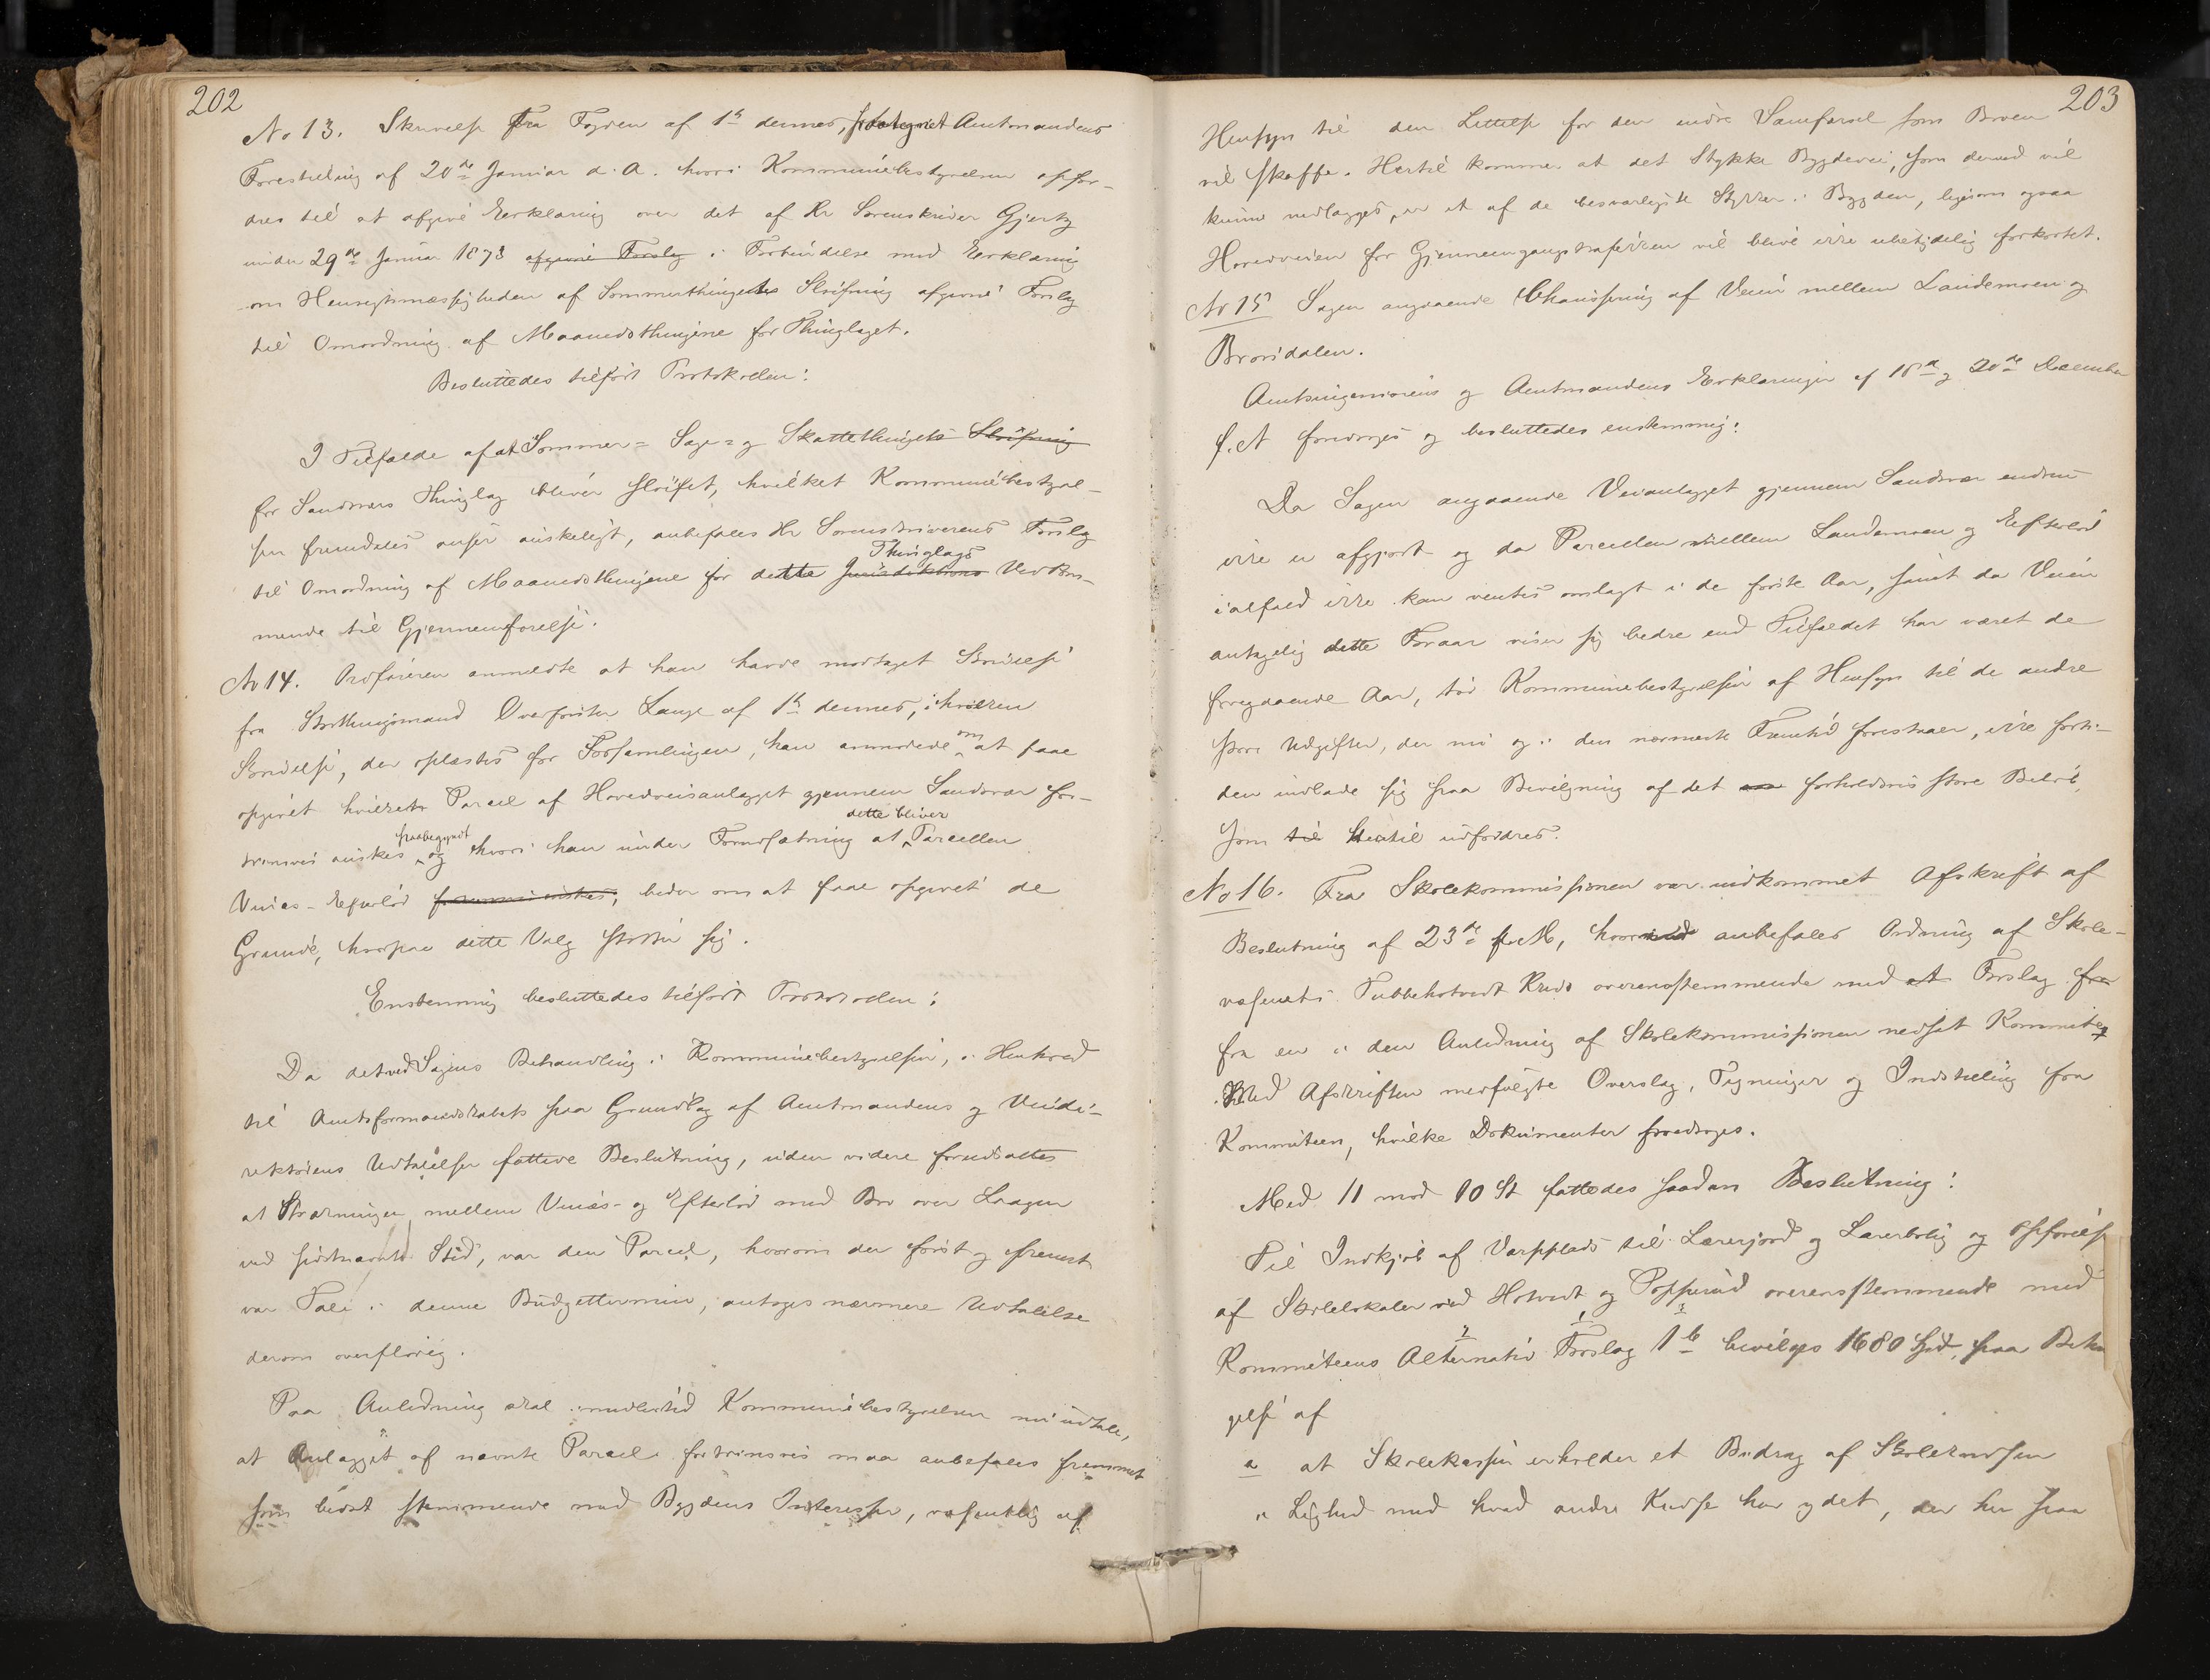 202
No 13. Skrivelse fra Fogden af 1ste dennes, Amtmandens
Forestilling af 20de Januar d. A. hvori Kommunebestyrelsen opfor-
dres til at afgive Erklæring over det af Hr Sorenskriver Gjertz
under 29de Januar 1873 afgivne Forslag i Forbindelse med Erklæring
om Hensigtsmæssigheden af Sommerthingets Sløifning afgivne Forslag
til Omordning af Maanedsthingene for Thinglaget.
Besluttedes tilført Protokollen:
I Tilfælde af at Sommer- Sage- og Skattethinget Sløifning
for Sandsværs Thinglag bliver sløifet, hvilket Kommunebestyrel-
sen fremdeles anser ønskeligt, anbefales Hr Sorenskriverens Forslag
Thinglags
til Omordning af Maanedsthingene for dette Jurisdiktions Vedkom-
mende til Gjennemførelse.
No 14. Ordføreren anmeldte at han havde modtaget Skrivelse
fra Storthingsmand Overførster Lange af 1ste dennes, i hvilken
Skrivelse, der oplæstes for Forsamlingen, han anmodede om at faae
opgivet hvilket Parcel af Hovedveisanlægget gjennem Sandsvær for-
paabegyndt dette bliver
trinsvis ønskes og hvori han under Forudsætning at Parcellen
Vinæs-Efteløt beder om at faae opgivet de
Grunde, hvorpaa dette Valg støtter sig.
Enstemmig besluttedes tilført Protokollen:
Da det ved Sagens Behandling i Kommunebestyrelsen, i Henhold
til Amtsformandskabets paa Grundlag af Amtmandens og Veidi-
rektørens Udtalelser fattede Beslutning, uden videre forudsattes
at Strækningen mellem Vinæs- og Efteløt med Bro over Laagen
ved sidstnævnte Sted, var den Parcel, hvorom der først og fremst
var Tale i denne Budgettermin, antoges nærmere Udtalelse
derom overflødig.
Paa Anledning skal imidlertid Kommunebestyrelsen nu udtale,
at Anlægget af nævnte Parcel fortrinsvis maa anbefales fremmet
som bedst stemmende med Bygdens Interesser, væsentlig af
203
Hensyn til den Lettelse for den indre Samfærsel som Broen
vil skaffe. Hertil kommer at det Stykke Bygdevei, som derved vil
kunne nedlægges, er et af de besværligste Stykker i Bygden, ligesom ogsaa
Hovedveien for Gjennemgangstrafikken vil blive ikke ubetydelig forkortet.
No 15 Sagen angaaende Chaussering af Veien mellem Landemoen og
Brovidalen.
Amtsingeniørens og Amtmandens Erklæringer af 18de og 20de December
f. A foredroges og besluttedes enstemmig:
Da Sagen angaaende Veianlægget gjennem Sandsvær endnu
ikke er afgjort og da Parcellen mellem Landemoen og Efteløt
ialfald ikke kan ventes omlagt i de første Aar, samt da Veien
antagelig dette Foraar viser sig bedre end Tilfældet har været de
foregaaende Aar, tør Kommunebestyrelsen af Hensyn til de andre
store Udgifter, der nu og i den nærmeste Fremtid forestaaer, ikke forti-
den indlade sig paa Bevilgning af det forholdsvis store Beløb,
som til hertil udfordres.
No 16. Fra Skolekommissionen var indkommet Afskrift af
Beslutning af 23de f. M, anbefales Ordning af Skole-
væsenets Tubbehotvedt Kreds overensstemmende med et Forslag fra
fra en i den Anledning af Skolekommissionen nedsat Kommite
Med Afskriften medfulgte Overslag, Tegninger og Indstilling fra
Kommiteen, hvilke Dokumenter foredroges.
Med 11 mod 10 St fattedes saadan Beslutning:
Til Indkjøb af til Lærerjord og Lærerbolig og Opførelse
af Skolelokaler ved Hotvedt og Popperud overensstemmende med
Kommiteens Alternativ Forslag 1ste bevilges 1680 Spd, paa Betin
gelse af
a at Skolekassen erholder et Bidrag af Skolekredsen
i Lighed med hvad andre Kredse har ydet, der her paa